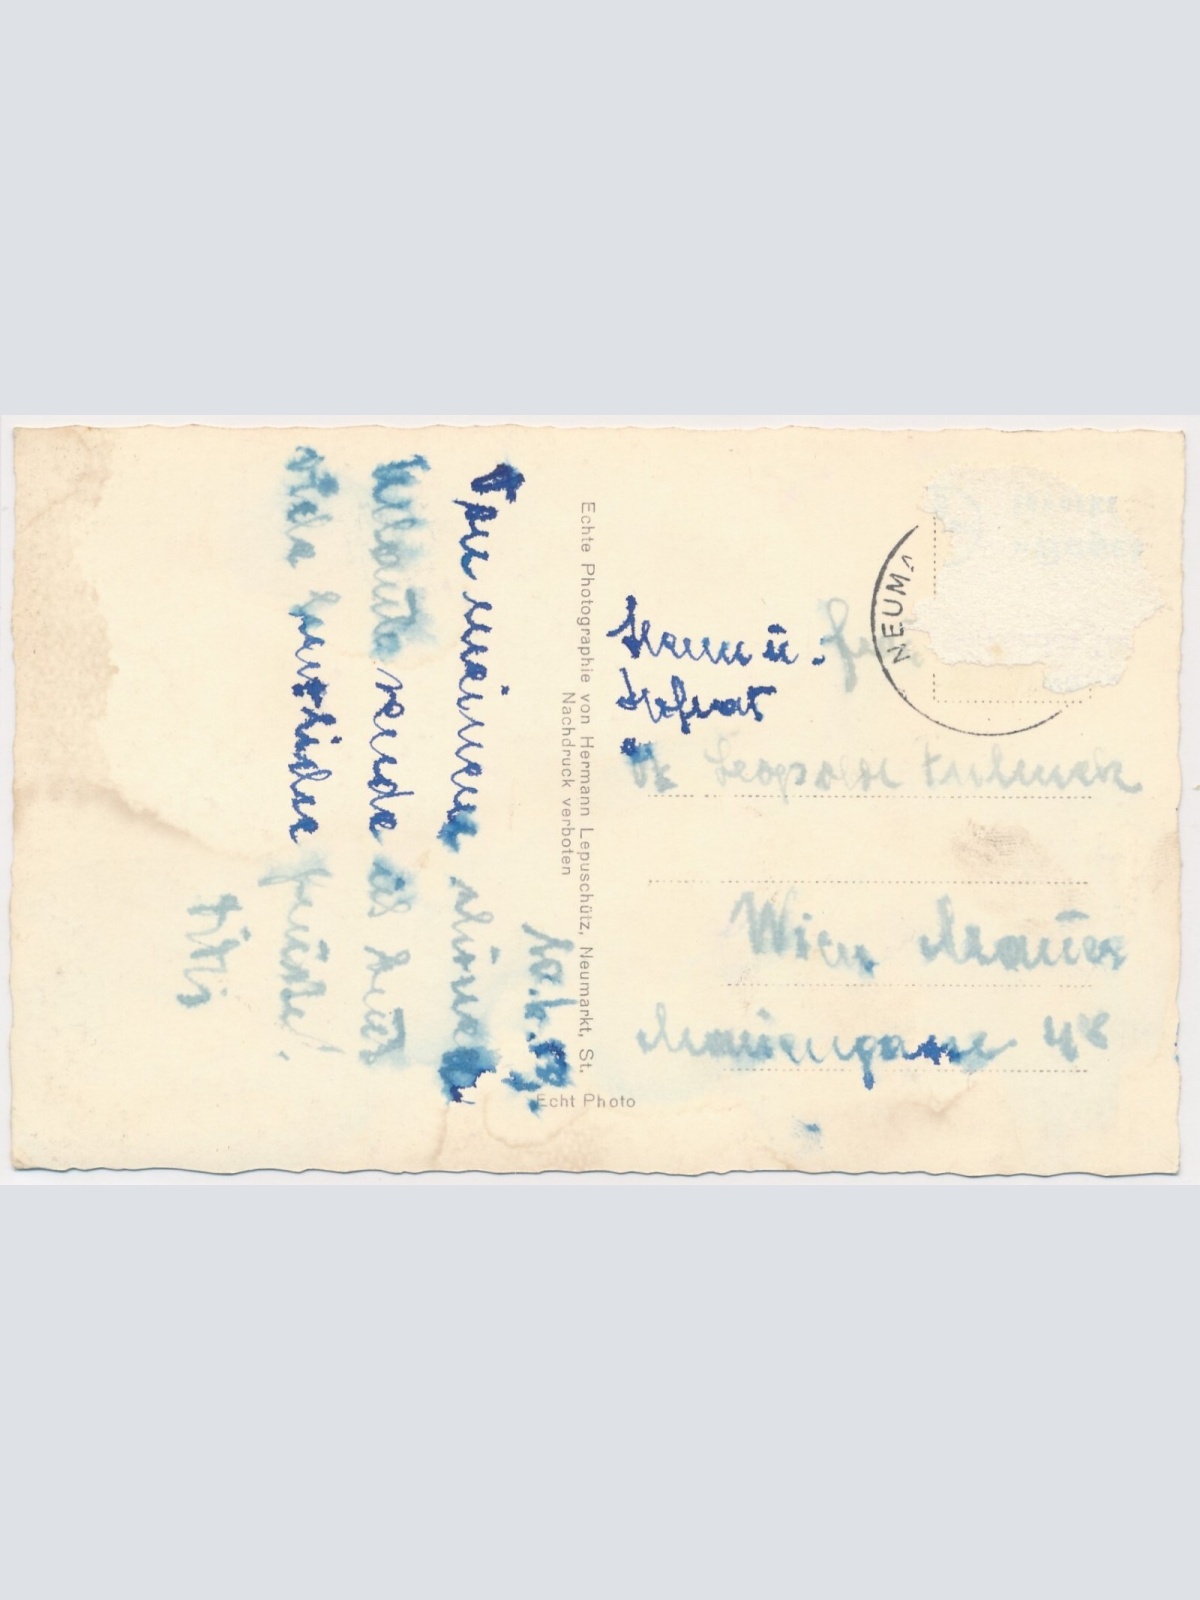 10.6.
Von meinem schönen
Urlaub sende ich heute
viele herzliche Grüße!
Fritzi
Echte Photographie von Hermann Lepuschütz, Neumarkt, St.
Nachdruck verboten
Echt Photo
NEUM
Herrn u.
Hofrat
Leopold
Wien Mauer
48